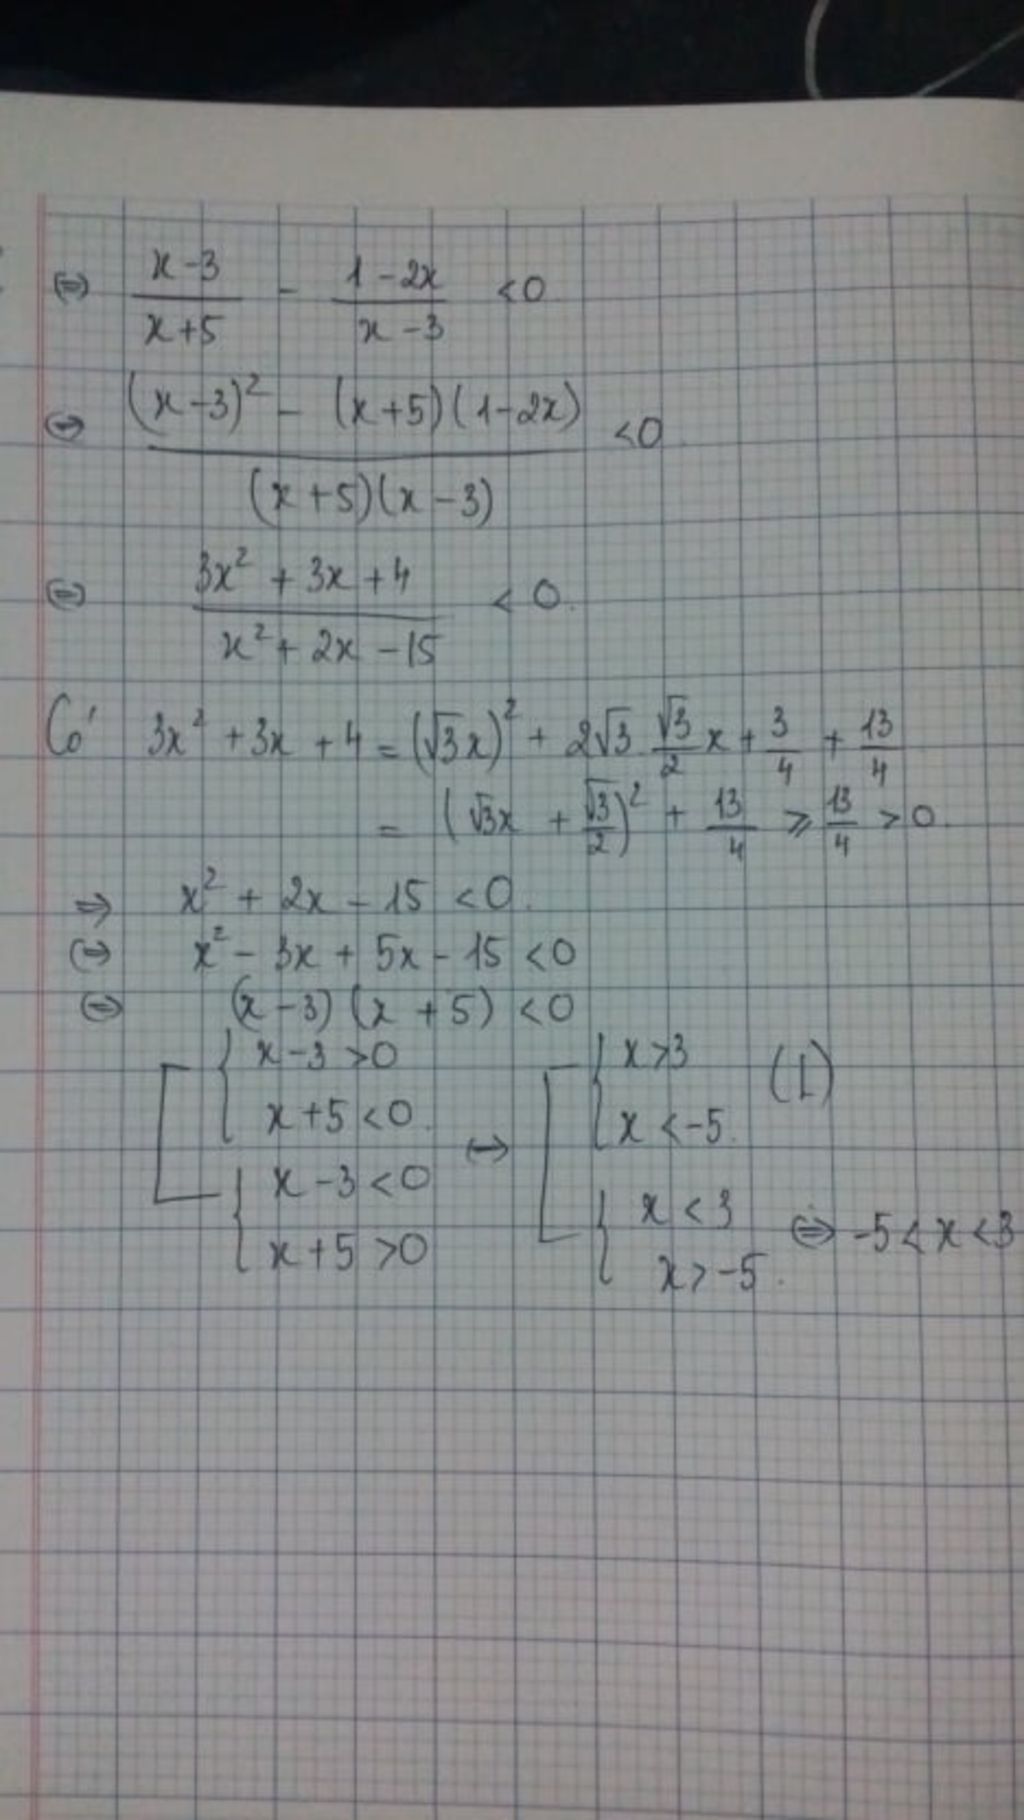 ⇔ (x-3)/(x+5) - (1-2x)/(x-3) < 0
⇔ ((x-3)² - (x+5)(1-2x))/((x+5)(x-3)) < 0
⇔ (3x² + 3x + 4)/(x² + 2x - 15) < 0.
Có 3x² + 3x + 4 = (√3x)² + 2√3 √3/2 x + 3/4 + 13/4
= (√3x + √3/2)² + 13/4 ⩾ 13/4 > 0.
⇒ x² + 2x - 15 < 0.
⇔ x² - 3x + 5x - 15 < 0
⇔ (x-3)(x+5) < 0
[ { x-3 > 0 [ { x > 3 (L)
x+5 < 0. ↔ x < -5.
{ x-3 < 0 { x < 3 ⇔ -5 < x < 3
x+5 > 0 x > -5.